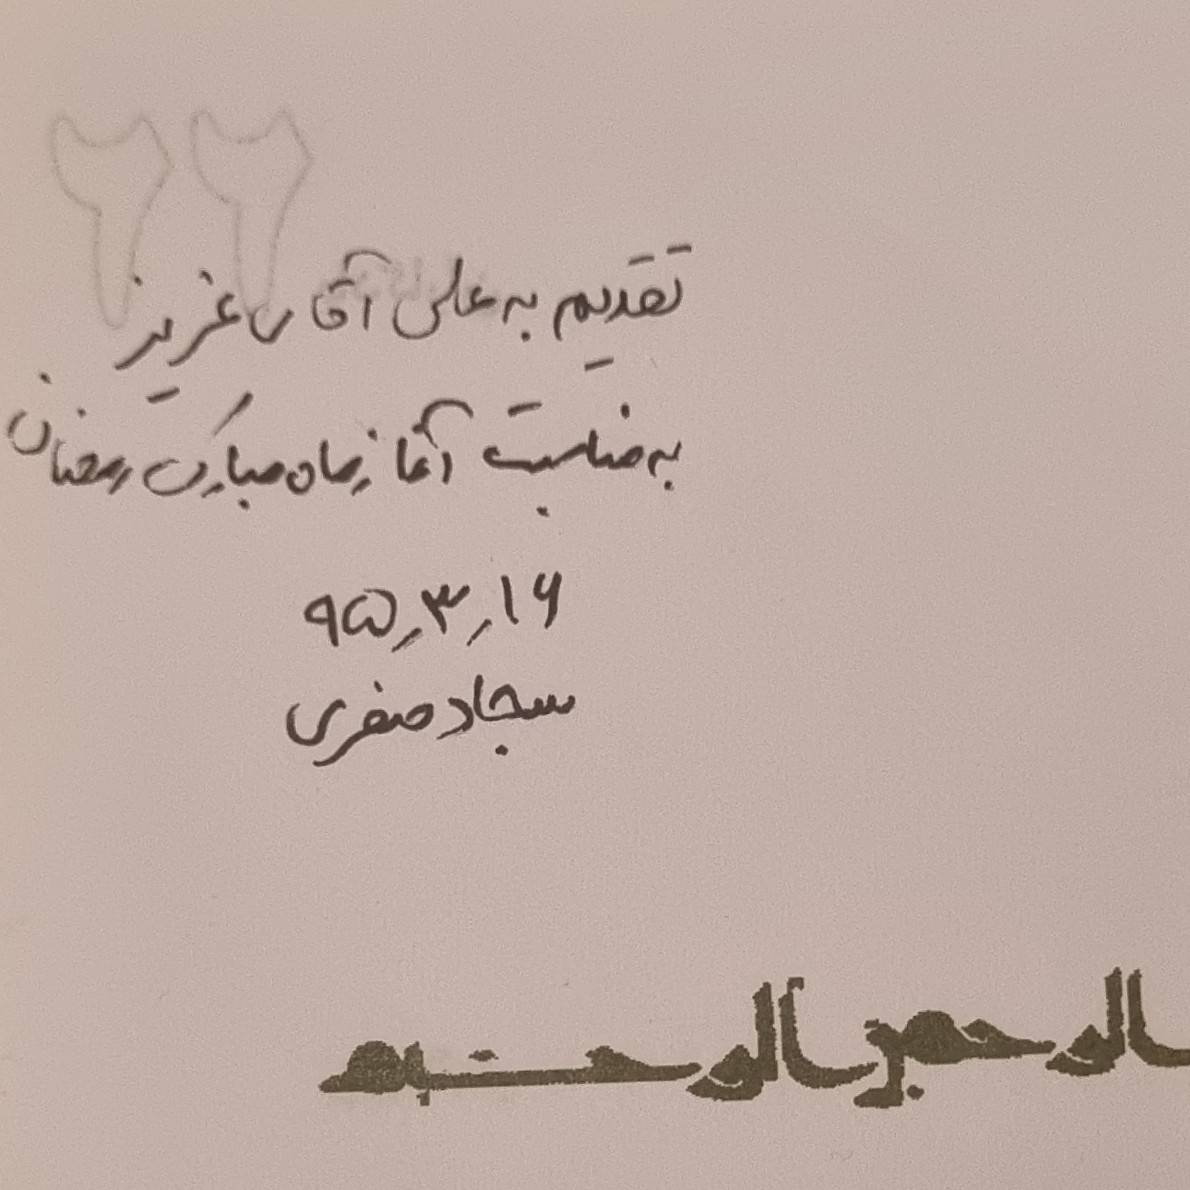 ۲۲
تقدیم به علی آقای عزیز
به مناسبت آغاز ماه مبارک رمضان
۹۵٫۳٫۱۶
سجاد صفری
الرحمن الرحیم